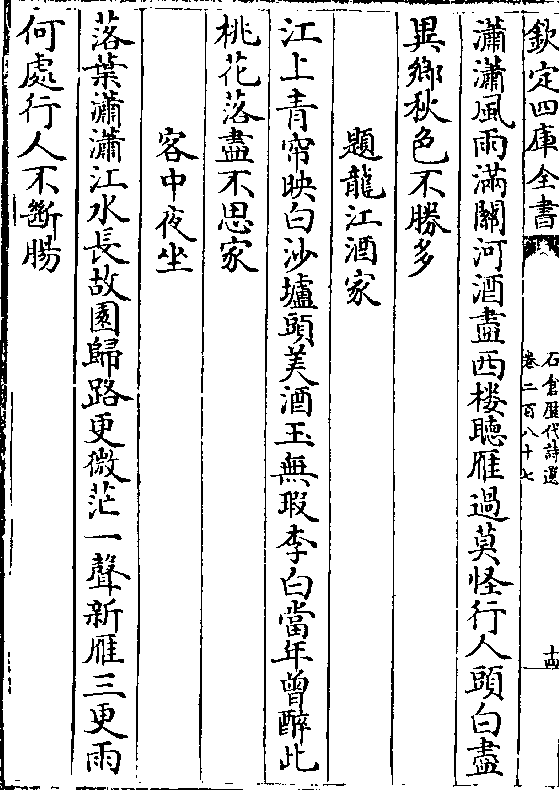 欽定四庫全書
石倉歷代詩選
卷二百八十七
十四
瀟瀟風雨滿關河酒盡西楼聴雁過莫怪行人頭白盡
異鄉秋色不勝多
題龍江酒家
江上青帘映白沙壚頭美酒玉無瑕李白當年曾醉此
桃花落盡不思家
客中夜坐
落葉瀟瀟江水長故園歸路更微茫一聲新雁三更雨
何處行人不斷腸